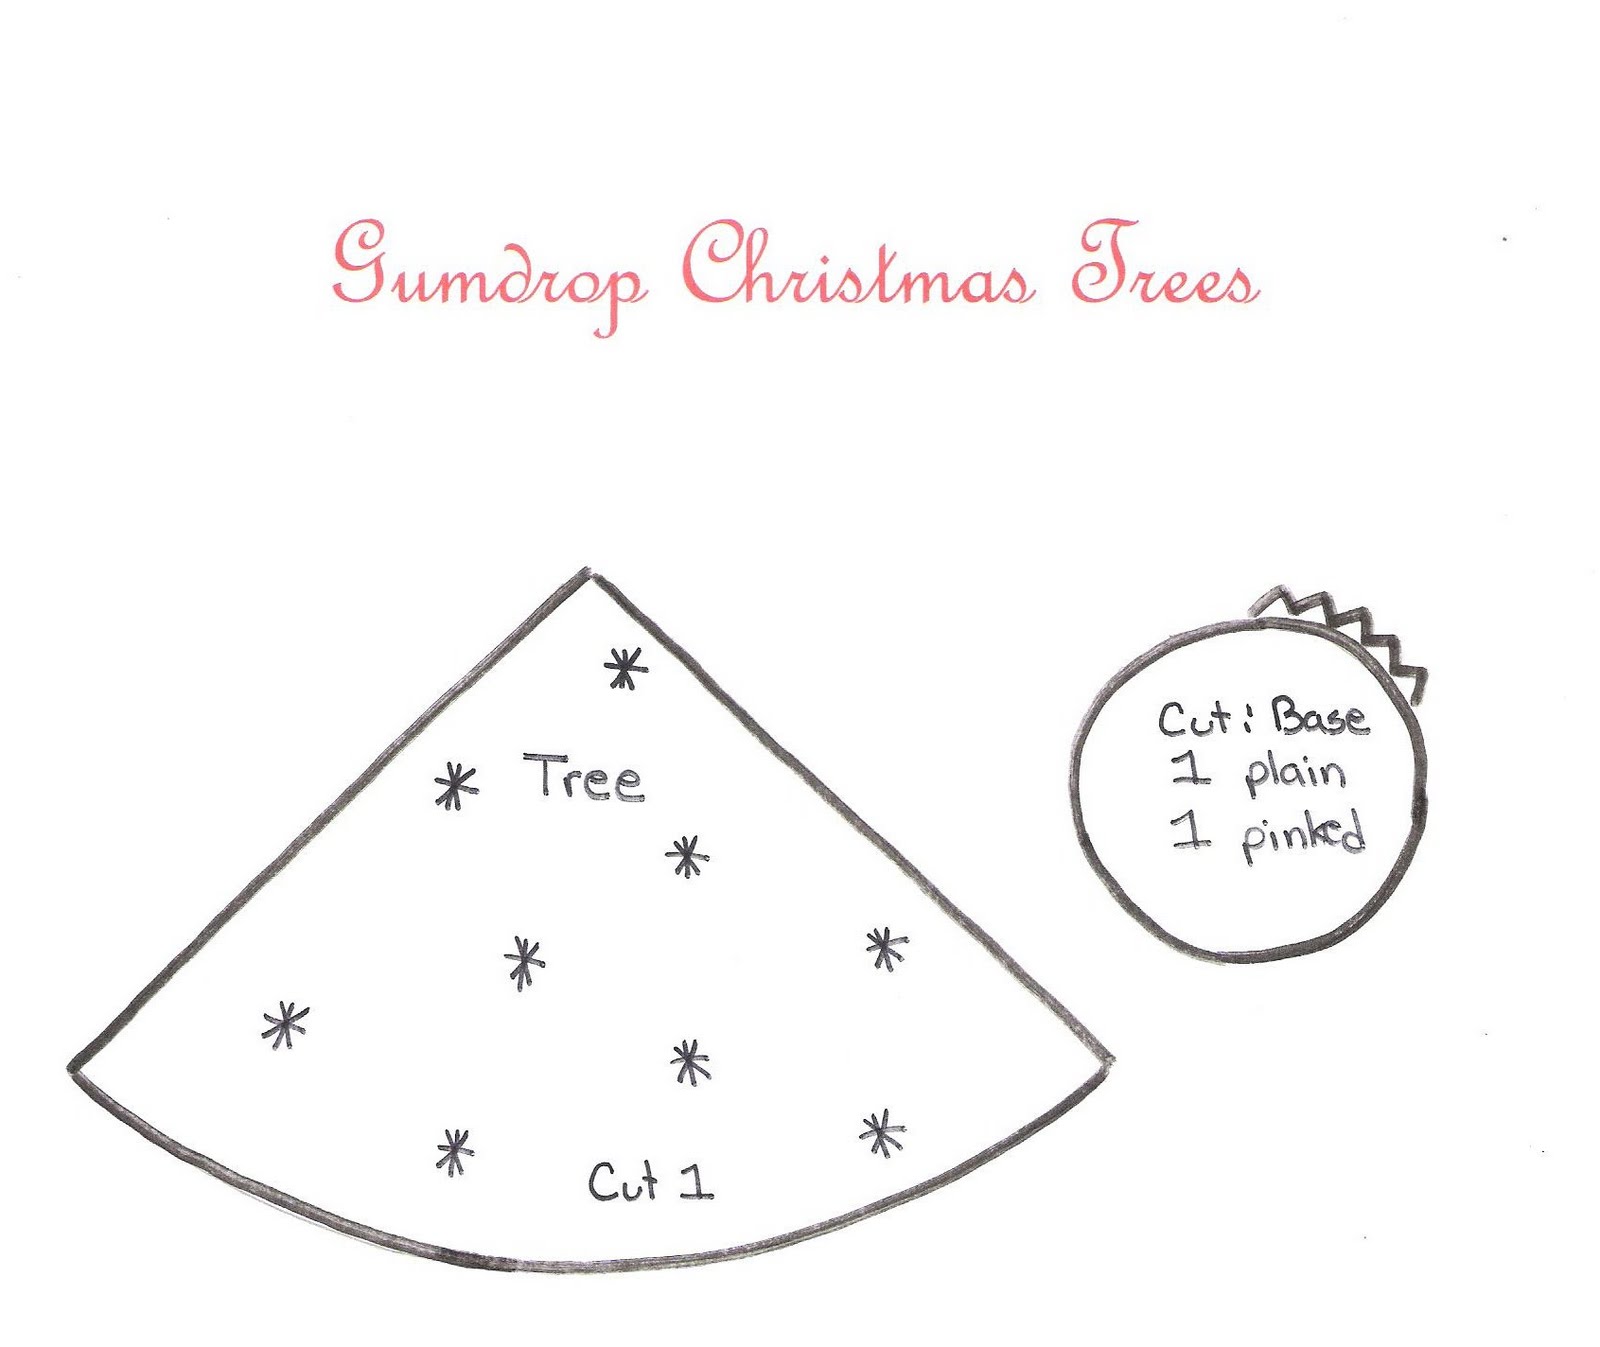 Gumdrop Christmas Trees
Tree
Cut 1
Cut: Base
1 plain
1 pinked